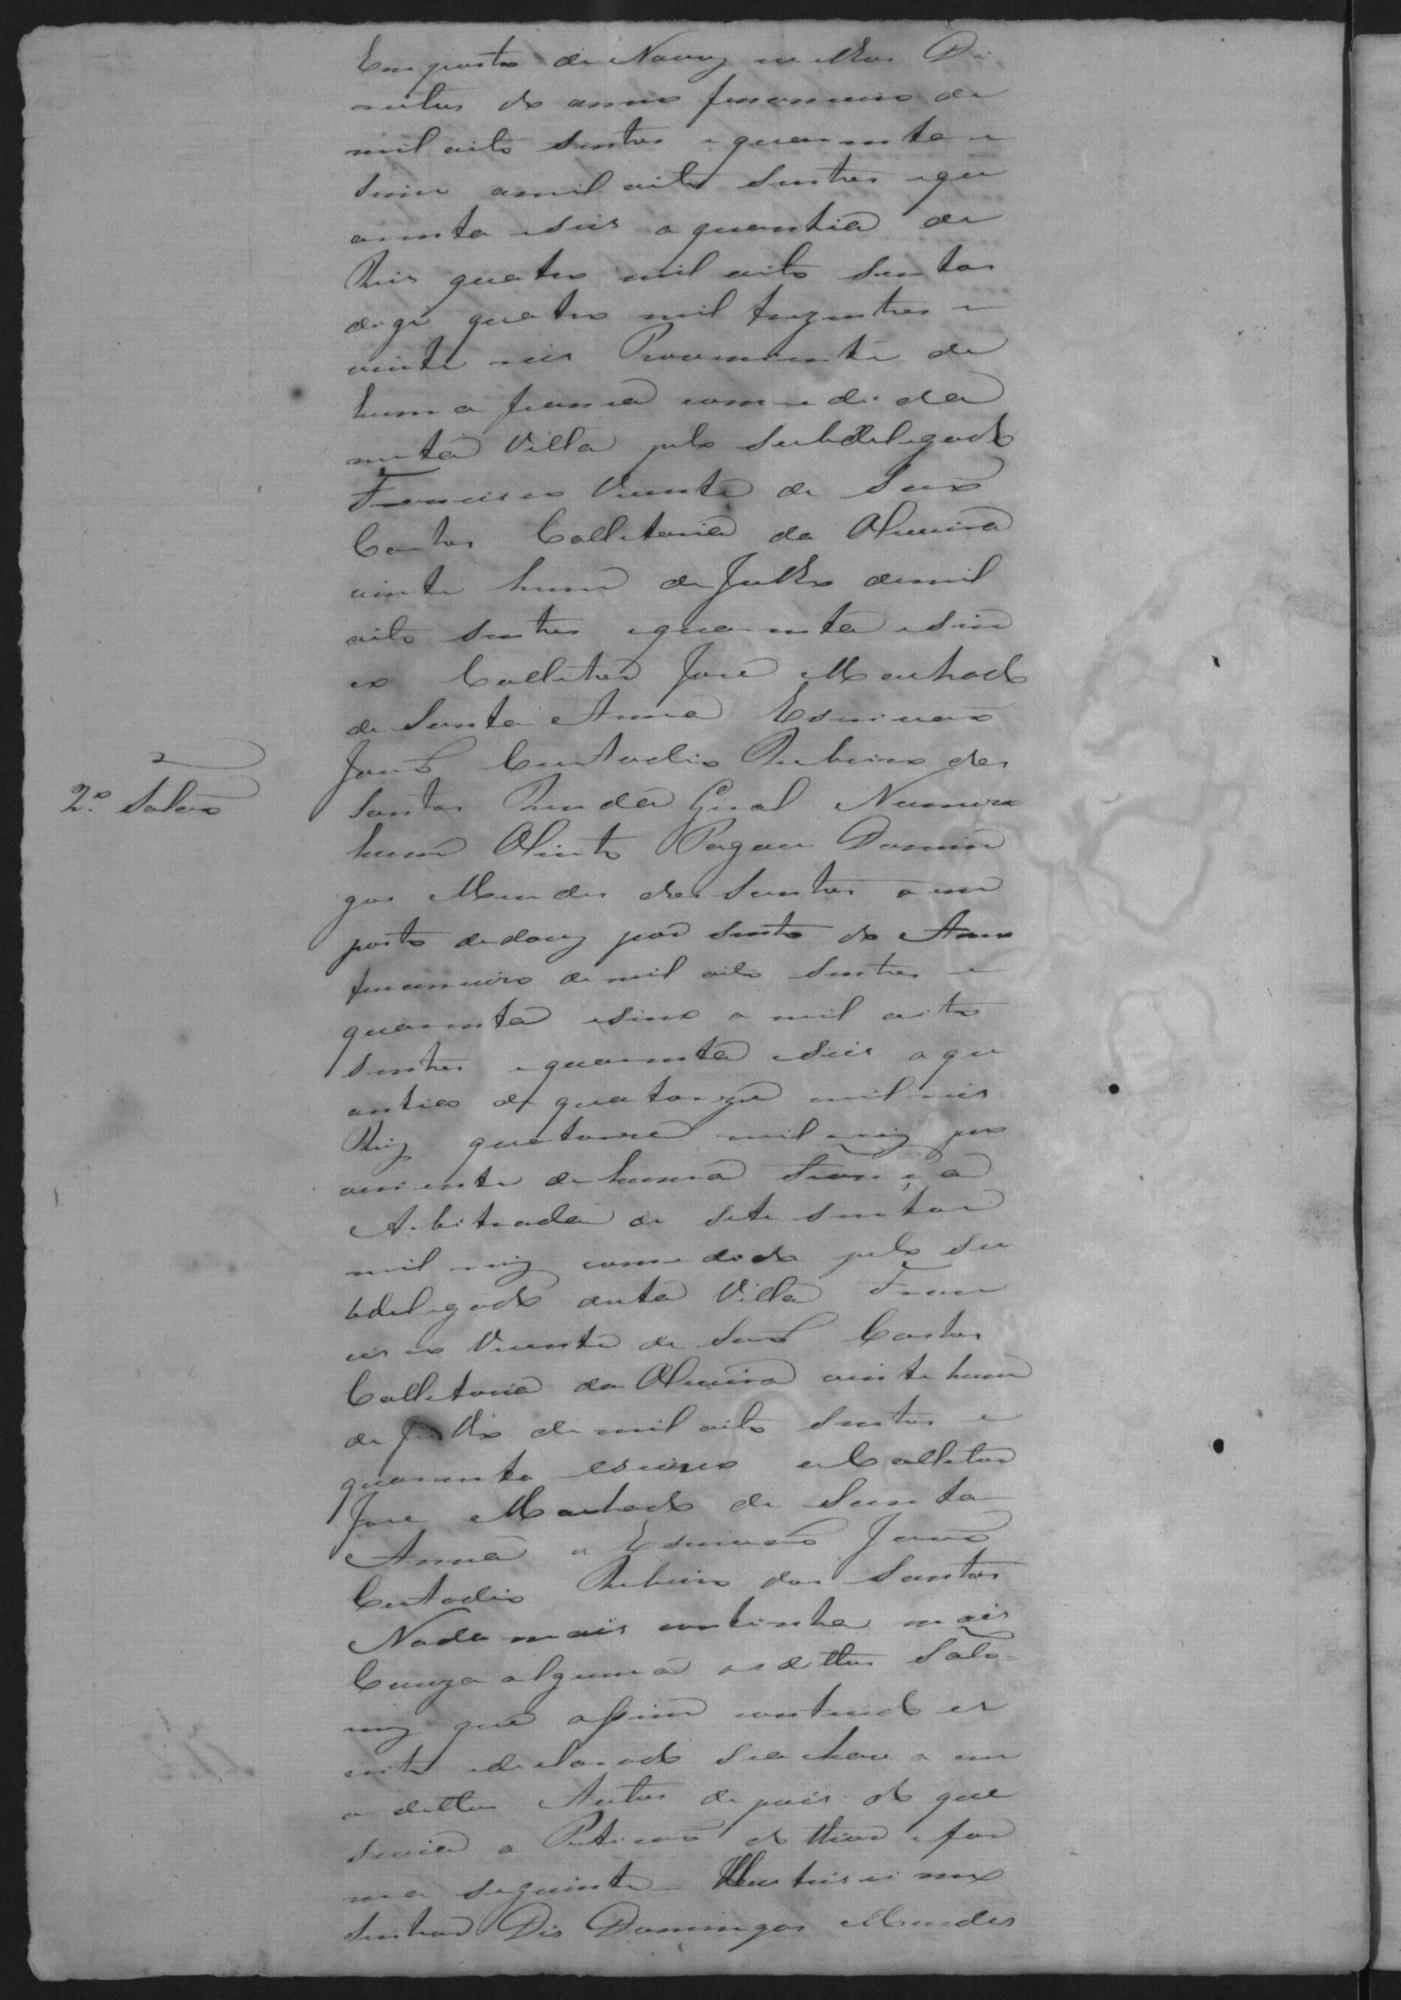 Emposto de Novoz ve lhos Di
reitos do anno finanneiro de
mil oito sentos e quarenta e
sinco a mil oito sentos e qua
arenta e seis a quantia de
Reis quatro mil oito sentos
digo quatro mil trezentos e
vinte reis Proveniente de
huma fianca comsedida
nesta Villa pelo Subdelegado
Francisco Vicente de Souza
Costas Colletoria da Oliveira
vinte hum de Julho de mil
oito sentos e quarenta e sin
co Colletor José Machado
de Santa Anna Escrivaõ
Joaõ Custodio Ribeiro dos
2.º Talaõ
Santos Renda Geral Numero
hum Oliento Pagou Domin
gos Mendes dos Santos o im
posto de douz por sento do Anno
finanneiro de mil oito sentos e
quarenta e sinco a mil oito
sentos e quarenta e seis a qu
antia de quatorze mil reis
Reiz quatorze mil reiz pro
veniente de huma Fiança
Arbitrada de sete sentos
mil reiz comsedida pelo Su
bdelegado desta Villa Fran
cisco Vicente de Souza Costas
Colletoria da Oliveira vinte hum
de Julho de mil oito sentos e
quarenta e sinco o Colletor
José Machado de Santa
Anna o Escrivaõ Joaõ
Custodio Ribeiro dos Santos
Nada mais continha mais
Couza alguma os dittos Talo-
ens que assim contendo es
crito e declarado se achava em
os dittos Autos depois do que
seria a Peticaõ do thior e for
ma seguinte Illustrissimo
Senhor Dis Domingos Mendes